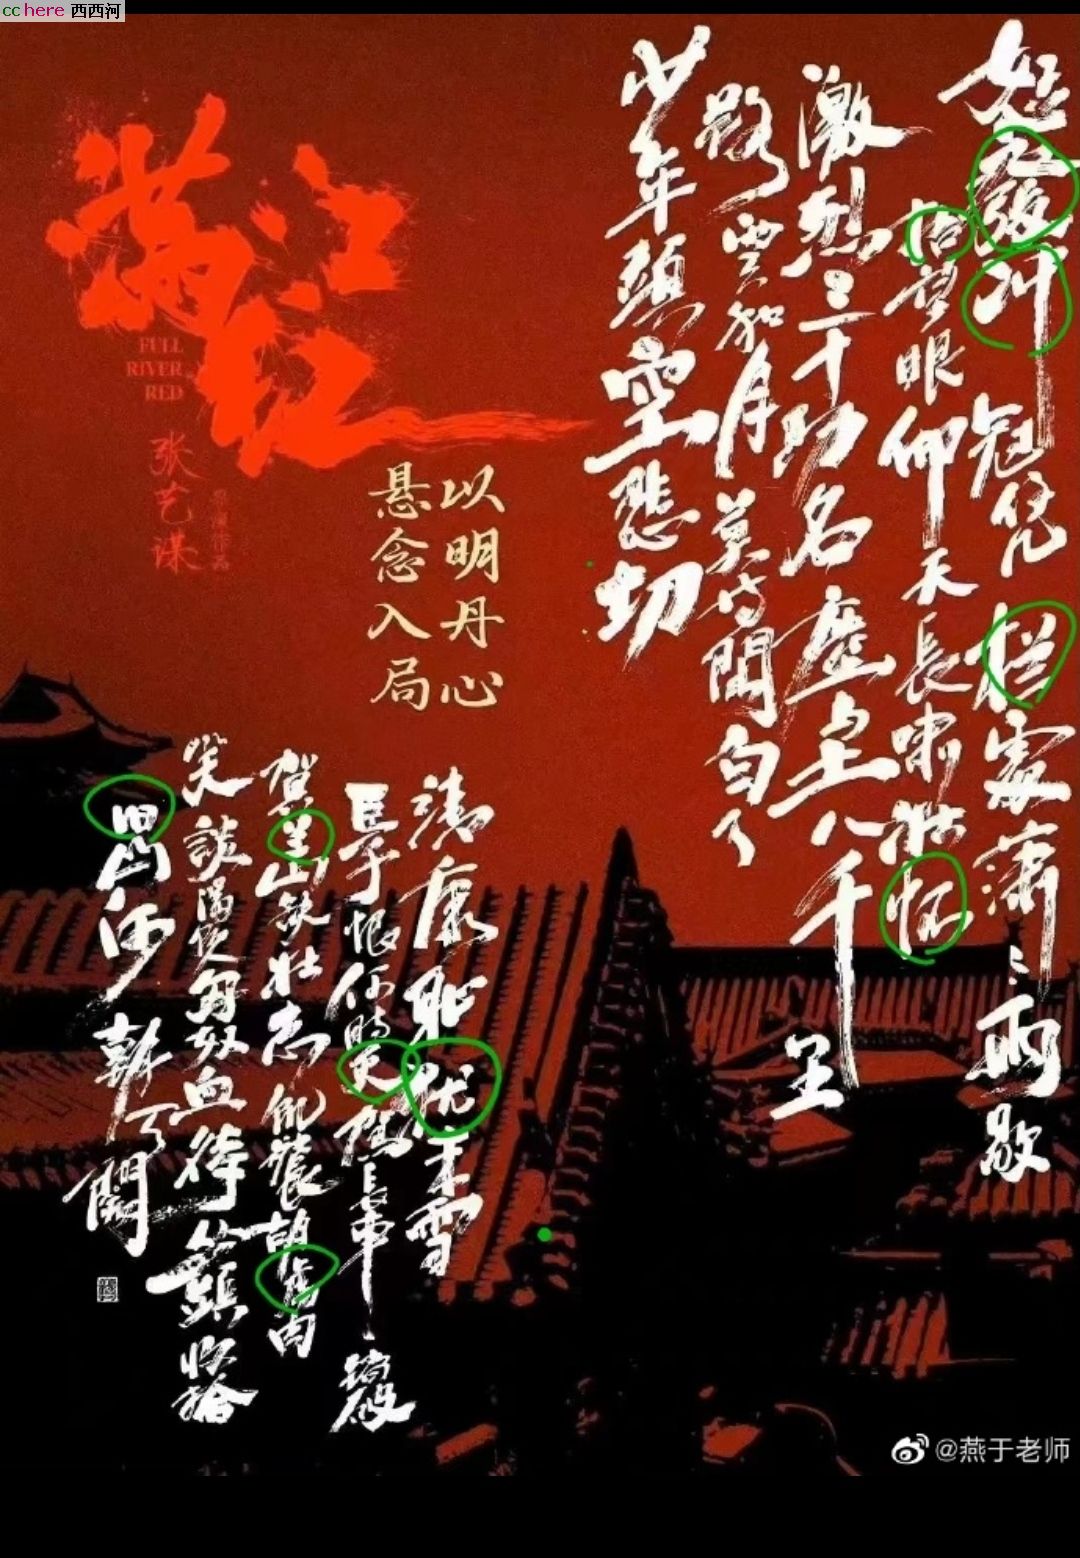 cc here 西西河
怒发冲冠凭栏家潇々雨歇
抬望眼仰天长啸壮怀
激烈三十功名尘与土八千里
路云和月莫等闲白了
少年头空悲切
满江红
FULL
RIVER
RED
张艺谋
以明丹心
悬念入局
靖康耻犹未雪
臣子恨何时灭驾长车
贺兰山缺壮志饥餐胡虏肉
笑谈渴饮匈奴血待从头收拾
旧山河朝天阙
@燕于老师